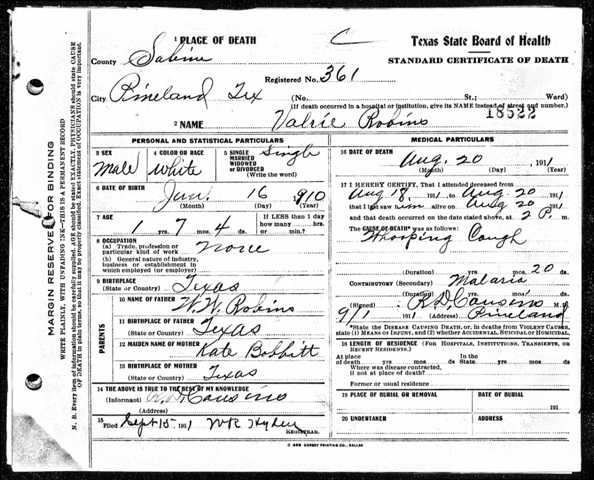 1 PLACE OF DEATH
C
Texas State Board of Health
STANDARD CERTIFICATE OF DEATH
County Sabine
Registered No. 361
City Pineland Tex (No. St.; Ward)
(If death occurred in a hospital or institution, give its NAME instead of street and number.)
18522
2 NAME Valrie Robins
PERSONAL AND STATISTICAL PARTICULARS
3 SEX Male
4 COLOR OR RACE White
5 SINGLE MARRIED WIDOWED or DIVORCED Single
(Write the word)
6 DATE OF BIRTH Jun. 16 1910
(Month) (Day) (Year)
7 AGE 1 yrs. 7 mos. 4 ds.
IF LESS than 1 day how many hrs. or min.?
8 OCCUPATION
(a) Trade, profession or particular kind of work None
(b) General nature of industry, business or establishment in which employed (or employer)
9 BIRTHPLACE
(State or Country) Texas
PARENTS
10 NAME OF FATHER W. W. Robins
11 BIRTHPLACE OF FATHER
(State or Country) Texas
12 MAIDEN NAME OF MOTHER Kate Bobbitt
13 BIRTHPLACE OF MOTHER
(State or Country) Texas
14 THE ABOVE IS TRUE TO THE BEST OF MY KNOWLEDGE
(Informant) Causino
(Address)
15
Filed Sept 15 1911 WR Hyden
REGISTRAR.
MEDICAL PARTICULARS
16 DATE OF DEATH Aug. 20, 1911
(Month) (Day) (Year)
17 I HEREBY CERTIFY, That I attended deceased from
Aug 18, 1911, to Aug 20 1911
that I last saw him alive on Aug 20 1911
and that death occurred on the date stated above, at 2 P. m.
The CAUSE OF DEATH* was as follows:
Whooping Cough
(Duration) yrs. mos. 20 ds.
CONTRIBUTORY (Secondary) Malaria
(Duration) yrs. mos. ds.
(Signed) Causino M.D.
9/1 1911 (Address) Pineland
*State the DISEASE CAUSING DEATH, or, in deaths from VIOLENT CAUSES, state (1) MEANS OF INJURY, and (2) whether ACCIDENTAL, SUICIDAL OR HOMICIDAL.
18 LENGTH OF RESIDENCE (FOR HOSPITALS, INSTITUTIONS, TRANSIENTS, OR RECENT RESIDENTS.)
At place of death yrs mos ds In the State yrs mos ds
Where was disease contracted, if not at place of death?
Former or usual residence
19 PLACE OF BURIAL OR REMOVAL
DATE OF BURIAL
191
20 UNDERTAKER
ADDRESS
MARGIN RESERVED FOR BINDING
WRITE PLAINLY, WITH UNFADING INK—THIS IS A PERMANENT RECORD
N. B. Every item of information should be carefully supplied. AGE should be stated EXACTLY. PHYSICIANS should state CAUSE OF DEATH in plain terms, so that it may be properly classified. Exact statement of OCCUPATION is very important.